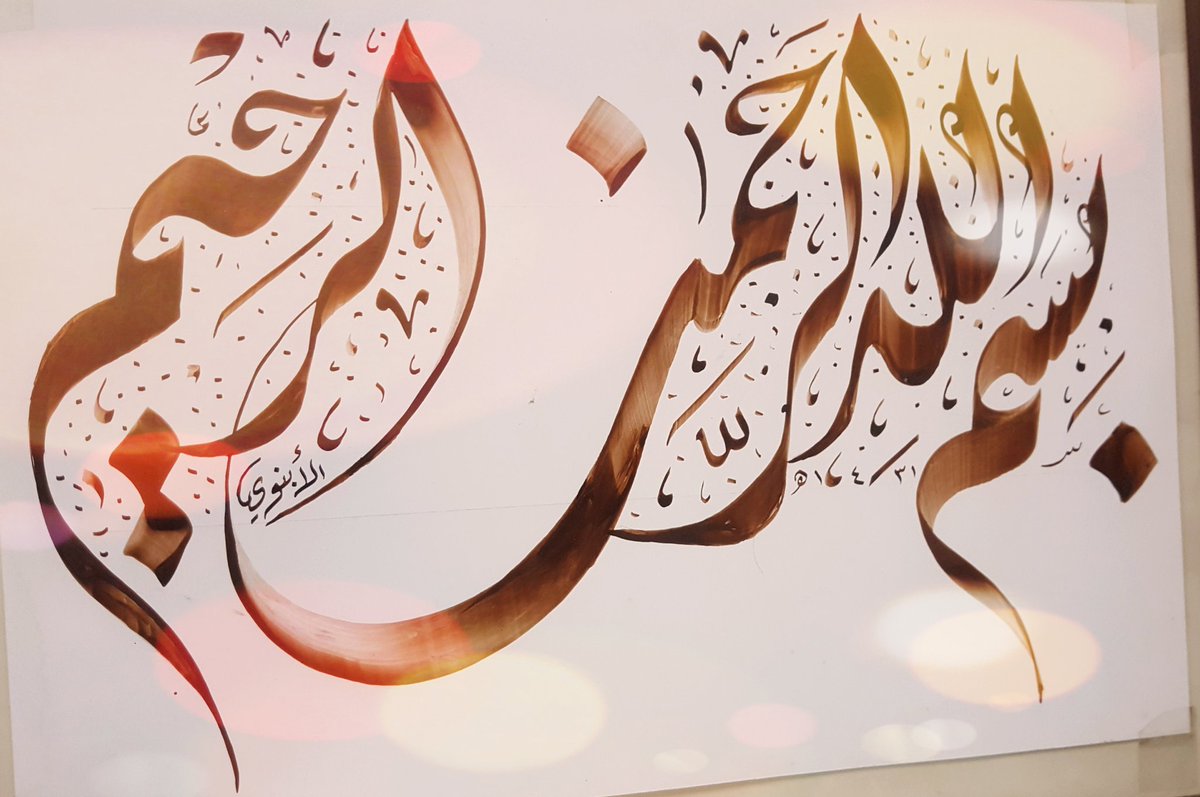 بسم الله الرحمن الرحيم
١٤٣١هـ